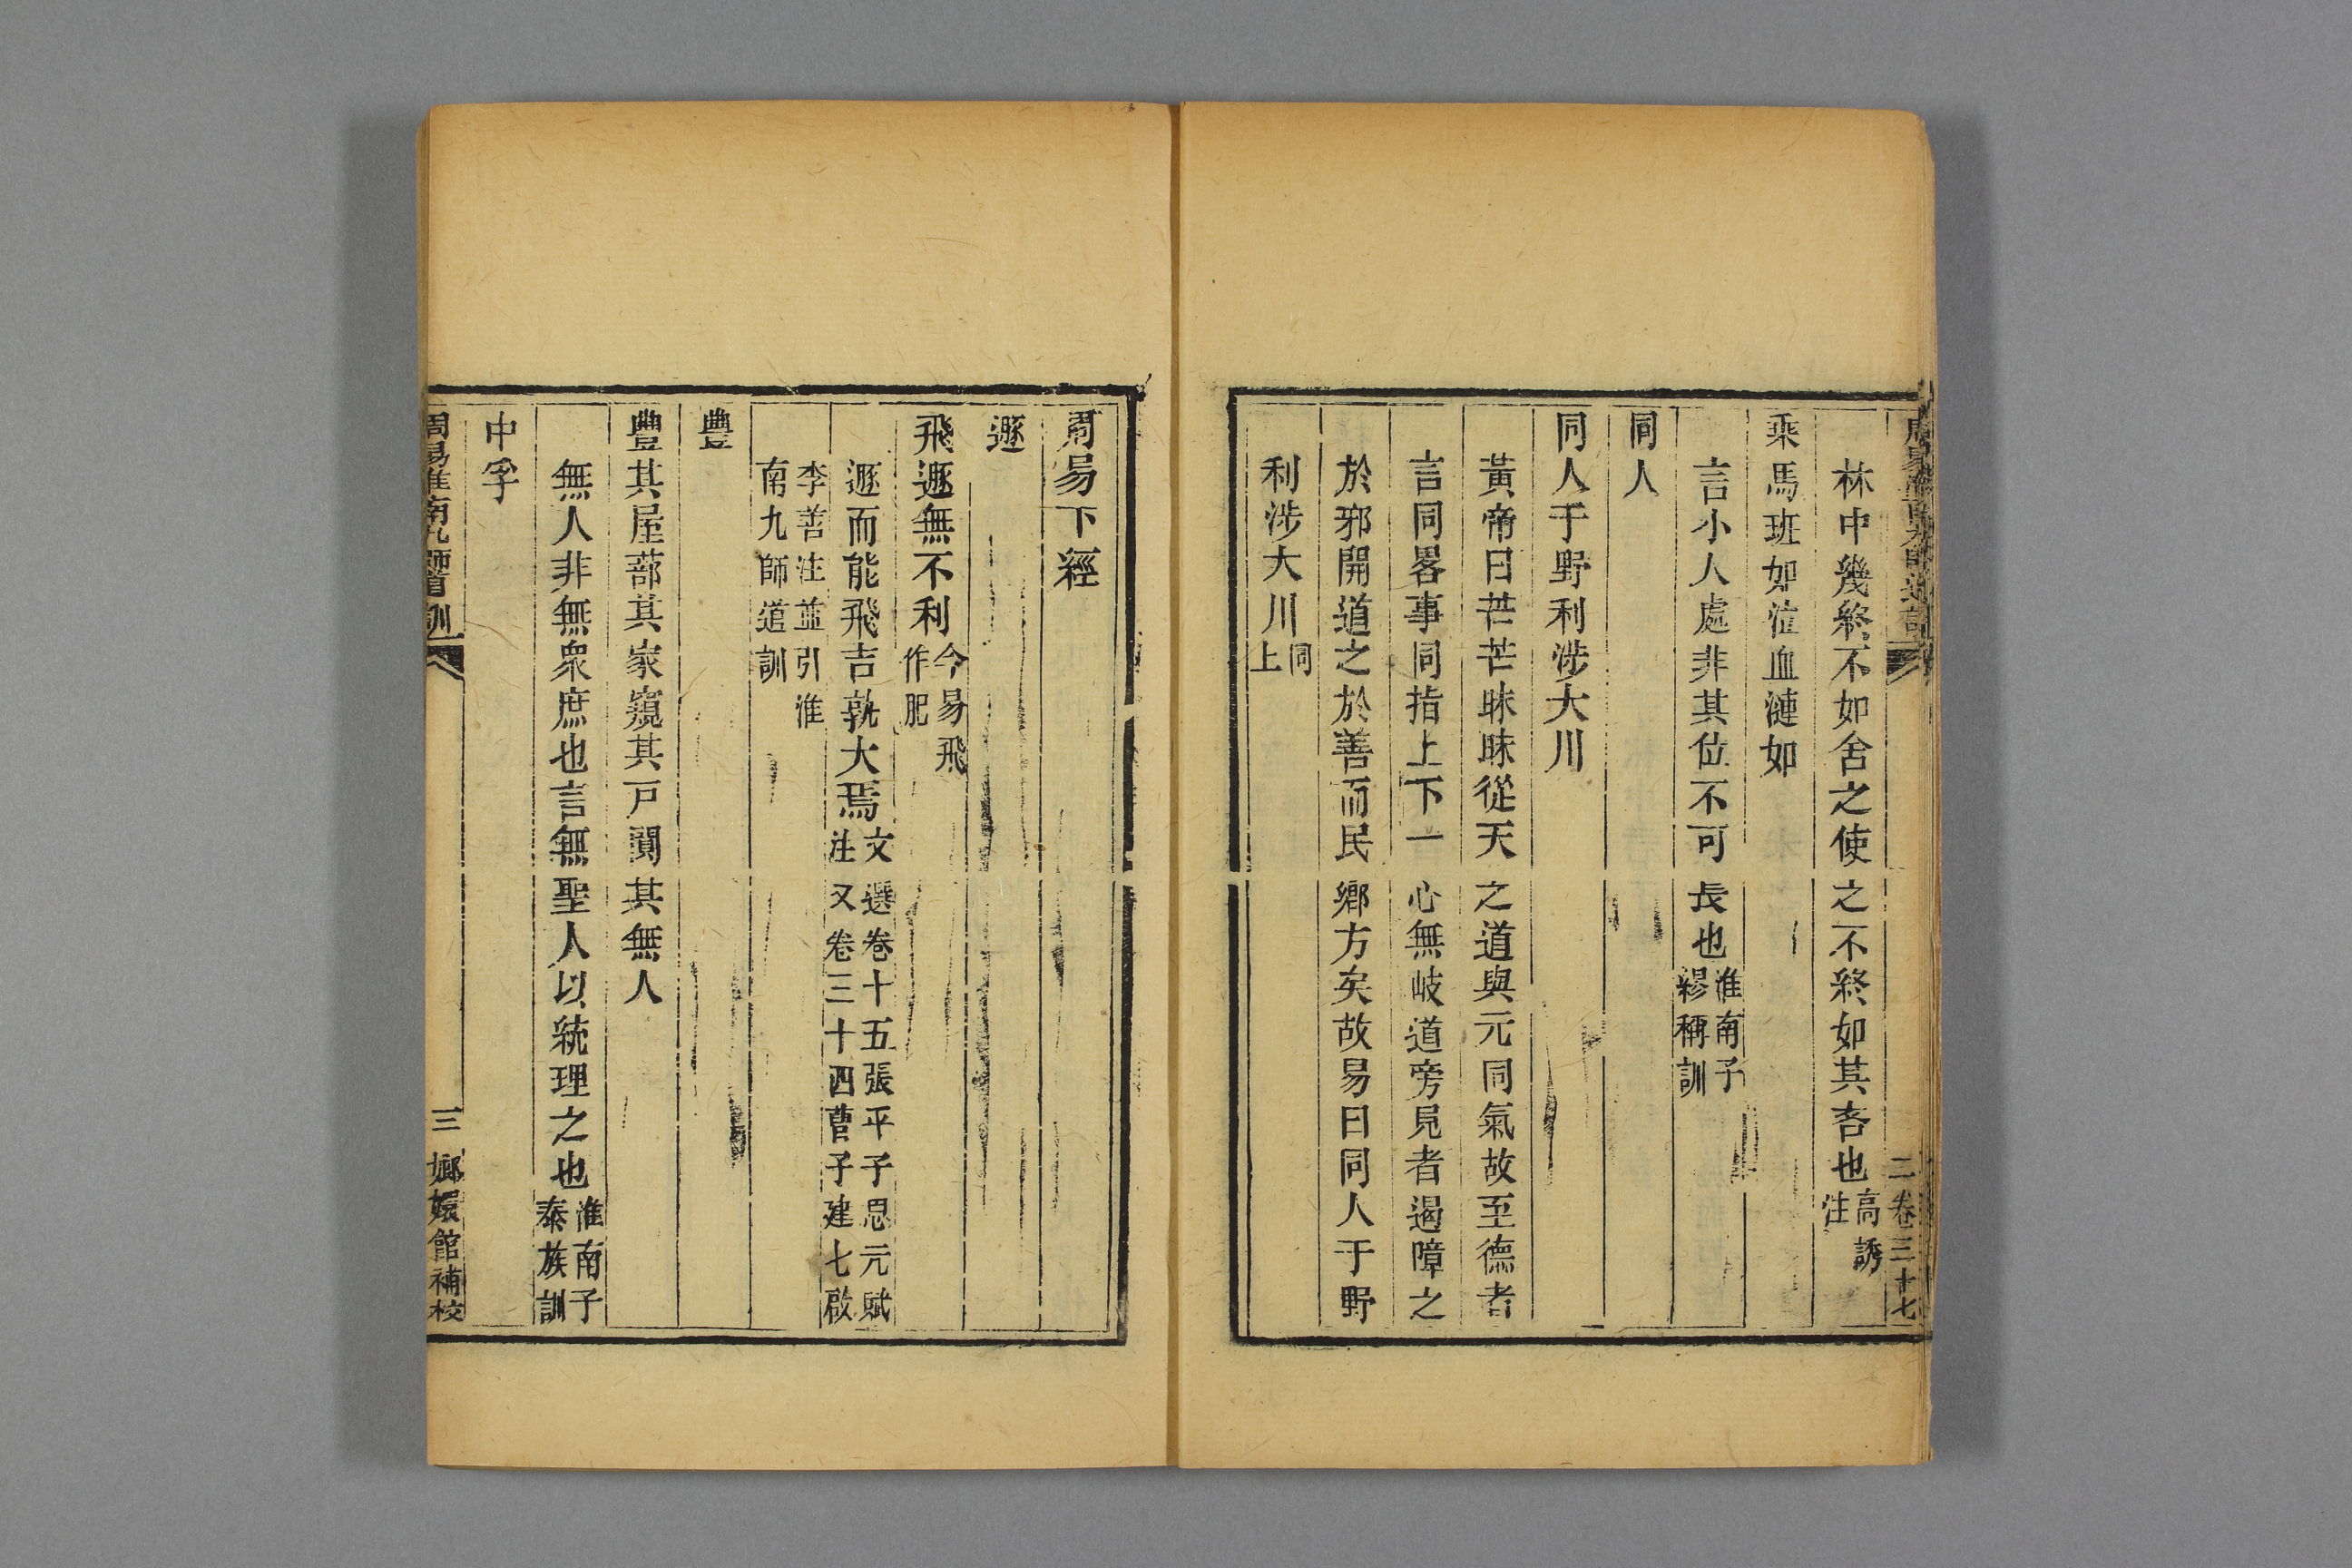 二卷三十七
林中幾終不如舍之使之不終如其吝也高誘注
乘馬班如泣血漣如
言小人處非其位不可長也淮南子繆稱訓
同人
同人于野利涉大川
黃帝曰芒芒昧昧從天之道與元同氣故至德者
言同畧事同指上下一心無岐道旁見者遏障之
於邪開道之於善而民鄉方矣故易曰同人于野
利涉大川同上
周易下經
遯
飛遯無不利今易飛作肥
遯而能飛吉孰大焉文選卷十五張平子思元賦注又卷三十四曹子建七啟
李善注並引淮南九師道訓
豐
豐其屋蔀其家窺其戸闃其無人
無人非無衆庶也言無聖人以統理之也淮南子泰族訓
中孚
周易淮南九師道訓
三
嫏嬛館補校